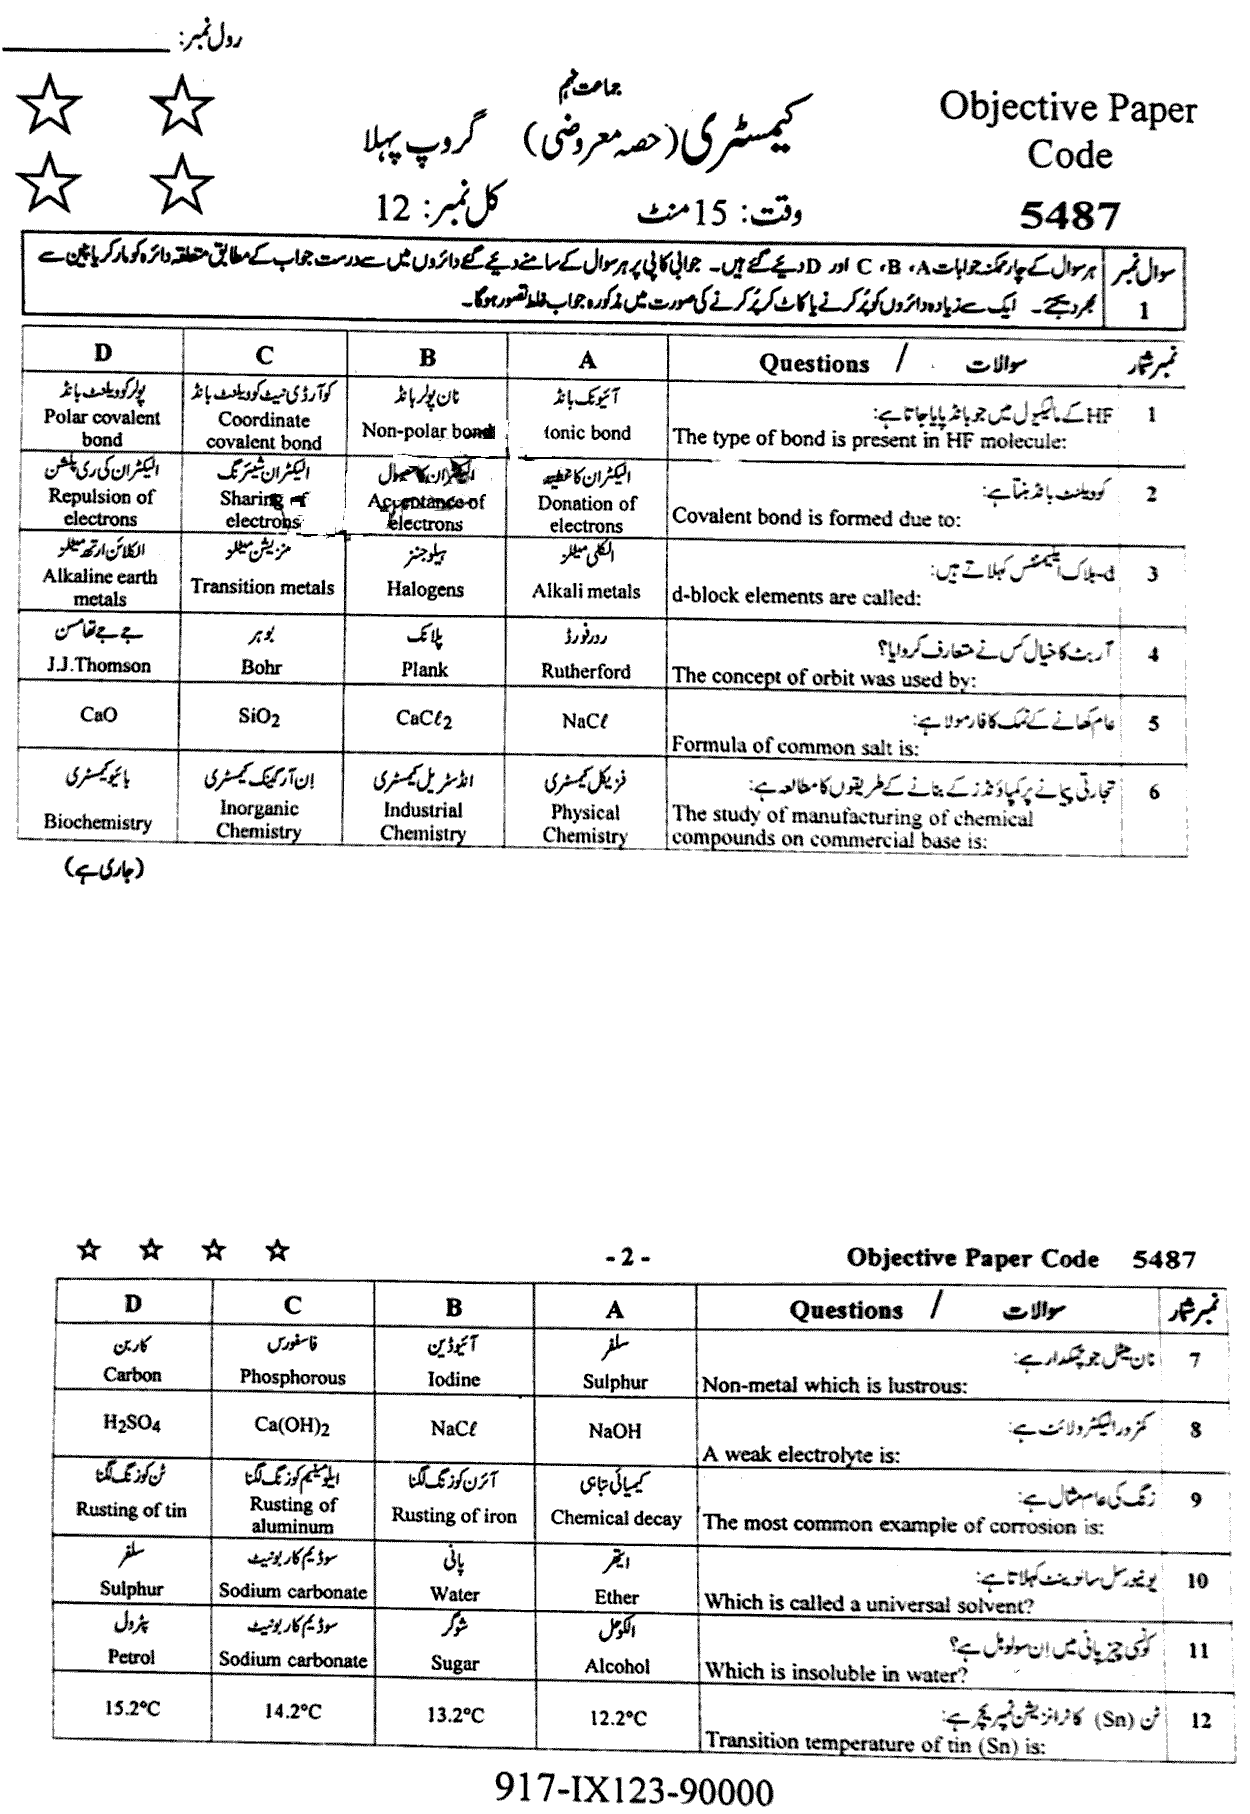 رول نمبر:
جماعت نہم
کیمسٹری (حصہ معروضی) گروپ پہلا
Objective Paper
Code
5487
وقت: 15 منٹ
کل نمبر: 12
سوال نمبر 1
ہر سوال کے چار ممکنہ جوابات A، B، C اور D دیئے گئے ہیں۔ جوابی کاپی پر ہر سوال کے سامنے دیئے گئے دائروں میں سے درست جواب کے مطابق متعلقہ دائرہ کو مارکر یا پین سے
بھر دیجئے۔ ایک سے زیادہ دائروں کو پُر کرنے یا کاٹ کر پُر کرنے کی صورت میں مذکورہ جواب غلط تصور ہوگا۔
نمبر شمار سوالات / Questions A B C D
1 HF کے مالیکیول میں جو بانڈ پایا جاتا ہے:
The type of bond is present in HF molecule:
آئیونک بانڈ
Ionic bond
نان پولر بانڈ
Non-polar bond
کوآرڈی نیٹ کوویلنٹ بانڈ
Coordinate
covalent bond
پولر کوویلنٹ بانڈ
Polar covalent
bond
2 کوویلنٹ بانڈ بنتا ہے:
Covalent bond is formed due to:
الیکٹران کا عطیہ
Donation of
electrons
الیکٹران کا حصول
Acceptance of
electrons
الیکٹران شیئرنگ
Sharing of
electrons
الیکٹران کی ری پلشن
Repulsion of
electrons
3 d-بلاک ایلیمنٹس کہلاتے ہیں:
d-block elements are called:
الکلی میٹلز
Alkali metals
ہیلوجنز
Halogens
ٹرزیشن میٹلز
Transition metals
الکلائن ارتھ میٹلز
Alkaline earth
metals
4 آربٹ کا خیال کس نے متعارف کروایا؟
The concept of orbit was used by:
ردرفورڈ
Rutherford
پلانک
Plank
بوہر
Bohr
جے جے تھامسن
J.J.Thomson
5 عام کھانے کے نمک کا فارمولا ہے:
Formula of common salt is:
NaCℓ
CaCℓ₂
SiO₂
CaO
6 تجارتی پیمانے پر کمپاؤنڈز کے بنانے کے طریقوں کا مطالعہ ہے:
The study of manufacturing of chemical
compounds on commercial base is:
فزیکل کیمسٹری
Physical
Chemistry
انڈسٹریل کیمسٹری
Industrial
Chemistry
اِن آرگینک کیمسٹری
Inorganic
Chemistry
بائیو کیمسٹری
Biochemistry
(جاری ہے)
- 2 -
Objective Paper Code 5487
نمبر شمار سوالات / Questions A B C D
7 نان میٹل جو چمکدار ہے:
Non-metal which is lustrous:
سلفر
Sulphur
آئیوڈین
Iodine
فاسفورس
Phosphorous
کاربن
Carbon
8 کمزور الیکٹرولائٹ ہے:
A weak electrolyte is:
NaOH
NaCℓ
Ca(OH)₂
H₂SO₄
9 زنگ کی عام مثال ہے:
The most common example of corrosion is:
کیمیائی تباہی
Chemical decay
آئرن کو زنگ لگنا
Rusting of iron
ایلومینیم کو زنگ لگنا
Rusting of
aluminum
ٹن کو زنگ لگنا
Rusting of tin
10 یونیورسل سالوینٹ کہلاتا ہے:
Which is called a universal solvent?
ایتھر
Ether
پانی
Water
سوڈیم کاربونیٹ
Sodium carbonate
سلفر
Sulphur
11 کونسی چیز پانی میں اِن سولوبل ہے؟
Which is insoluble in water?
الکوحل
Alcohol
شوگر
Sugar
سوڈیم کاربونیٹ
Sodium carbonate
پٹرول
Petrol
12 ٹن (Sn) کا ٹرانزیشن ٹمپریچر ہے:
Transition temperature of tin (Sn) is:
12.2°C
13.2°C
14.2°C
15.2°C
917-IX123-90000